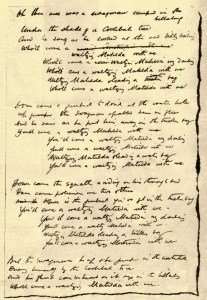 Oh there was a swagman camped in the
billabong
Under the shade of a Coolibah tree
And he sang as he looked at the old billy boiling
Who'll come a
waltzing Matilda with me
Who'll come a waltzing Matilda my darling
Who'll come a waltzing Matilda with me
Waltzing Matilda leading a bag
Who'll come a waltzing Matilda with me
Down came a jumbuck to drink at the water hole
Up jumped the swagman grabbed him in glee
And he sang as he put him away in the tucker bag
You'll come a waltzing Matilda with me
You'll come a waltzing Matilda my darling
You'll come a waltzing Matilda with me
Waltzing Matilda leading a bag
You'll come a waltzing Matilda with me
Down came the squatter a riding on his thoroughbred
Down came policemen one two three
the jumbuck you've got in the tucker bag
You'll come a waltzing Matilda with me
You'll come a waltzing Matilda my darling
You'll come a waltzing Matilda with me
Waltzing Matilda leading a bag
You'll come a waltzing Matilda with me
But the swagman he up and he jumped in the water hole
Drowning himself by the Coolibah tree
And his ghost may be heard as it sings in the billabong
Who'll come a waltzing Matilda with me